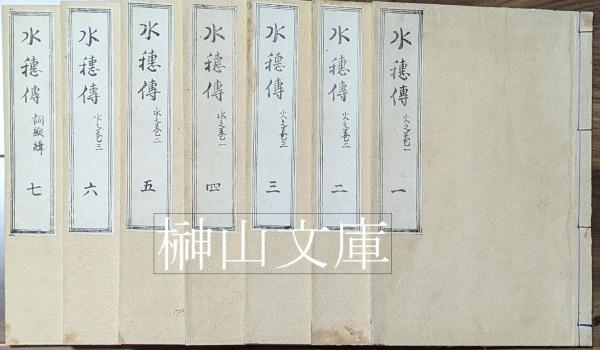 水穗傳 火之巻一 一
水穗傳 火之巻二 二
水穗傳 火之巻三 三
水穗傳 水之巻一 四
水穗傳 水之巻二 五
水穗傳 水之巻三 六
水穗傳 七
榊山文庫